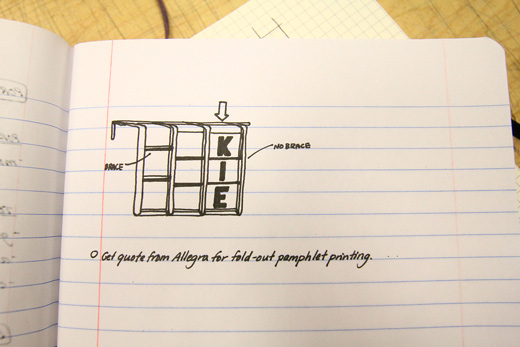 K
I
E
BRACE
NO BRACE
Get quote from Allegra for fold-out pamphlet printing.